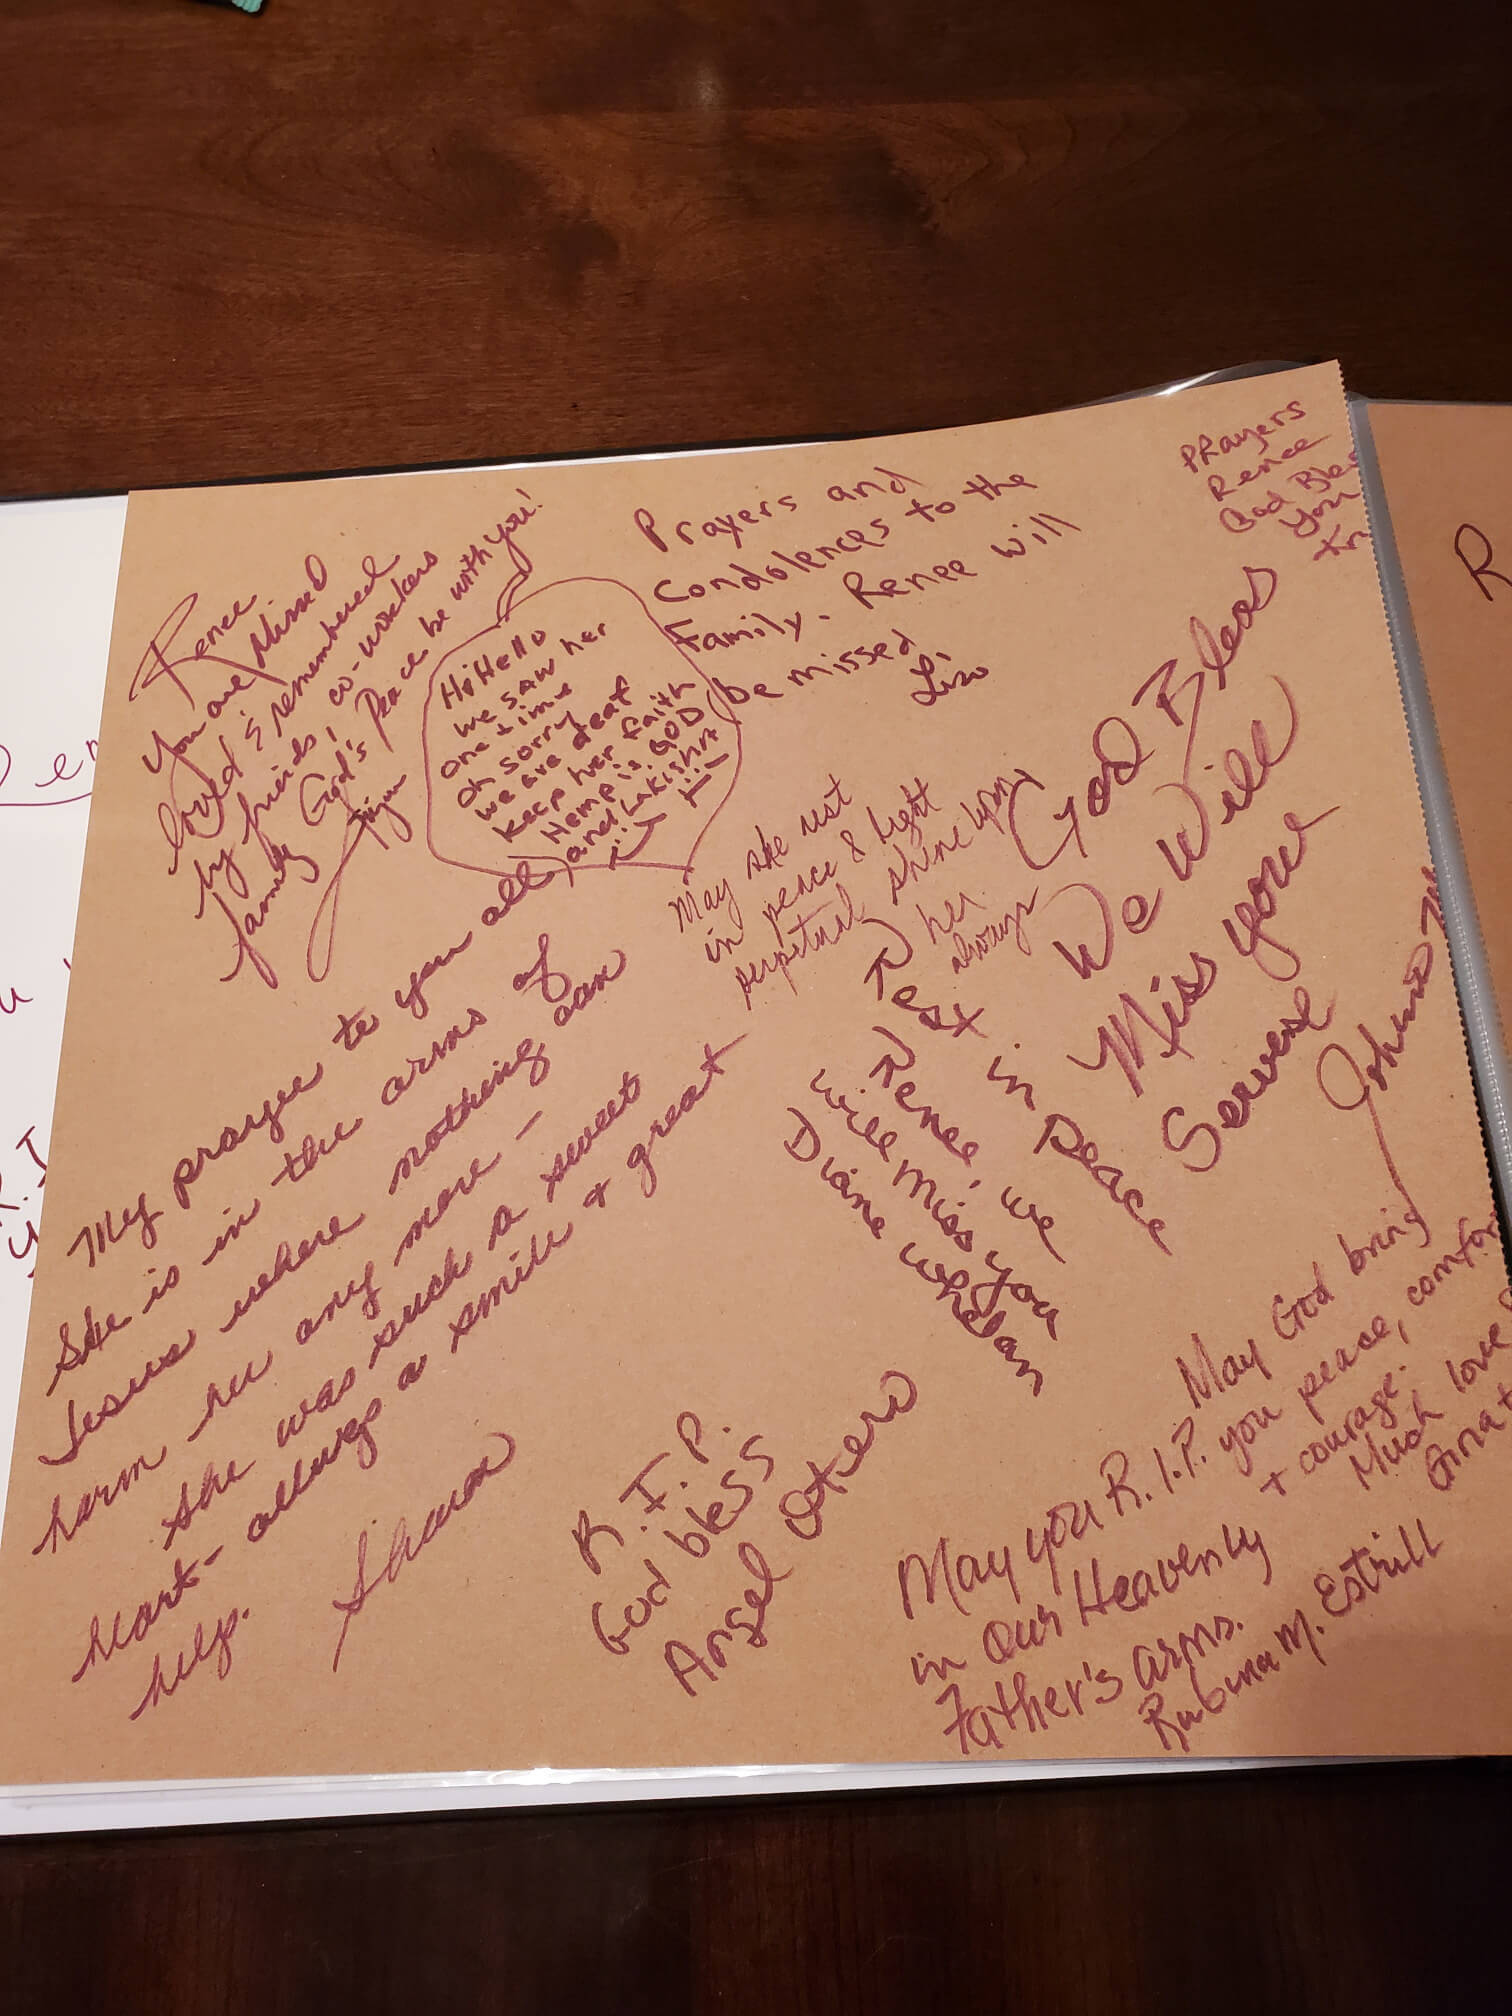 Renee
You are Missed
loved & remembered
by friends, co-workers
family God's Peace be with you!
HiHello
we saw her
one time
oh sorry
we are deaf
keep her faith
Hemp is GOD
and LAKISHA
!!!
Prayers and
Condolences to the
Family. Renee will
be missed
PRayers
Renee
God
You
May she rest
in peace & light
perpetual shine upon
her
always
God Bless
We Will
Miss you
My prayer to you all
She is in the arms of
Jesus where nothing can
harm her any more -
She was such a sweet
heart - always a smile & great
help.
Rest in Peace
Renee we
will miss you
Diane
R.I.P.
God bless
Angel Otero
May God bring
you peace,
+ courage.
Much love
May you R.I.P.
in Our Heavenly
Father's arms.
Rubina M. Estrill
R